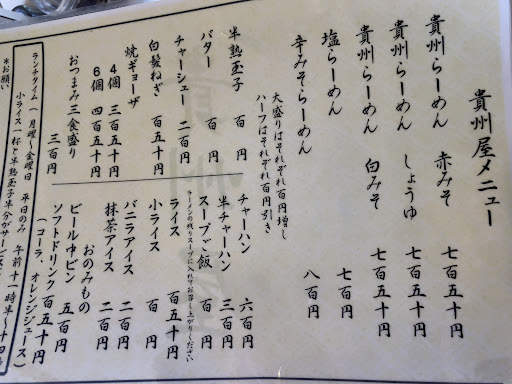 貴州屋メニュー
貴州らーめん 赤みそ 七百五十円
貴州らーめん しょうゆ 七百五十円
貴州らーめん 白みそ 七百五十円
塩らーめん 七百円
辛みそらーめん 八百円
大盛りはそれぞれ百円増し
ハーフはそれぞれ百円引き
半熟玉子 百円
バター 百円
チャーシュー 二百円
白髪ねぎ 百五十円
焼ギョーザ
4個 三百五十円
6個 四百五十円
おつまみ三食盛り
三百円
チャーハン 六百円
半チャーハン 三百円
スープご飯 百円
ラーメンの残りスープに入れてお召し上がりください
ライス 百五十円
小ライス 百円
バニラアイス 二百円
抹茶アイス 二百円
おのみもの
ビール中ビン 五百円
ソフトドリンク 百五十円
(コーラ、オレンジジュース)
ランチタイム 月曜〜金曜日 平日のみ 午前十一時半〜十四時
小ライス一杯か半熟玉子半分がサービス
*お願い